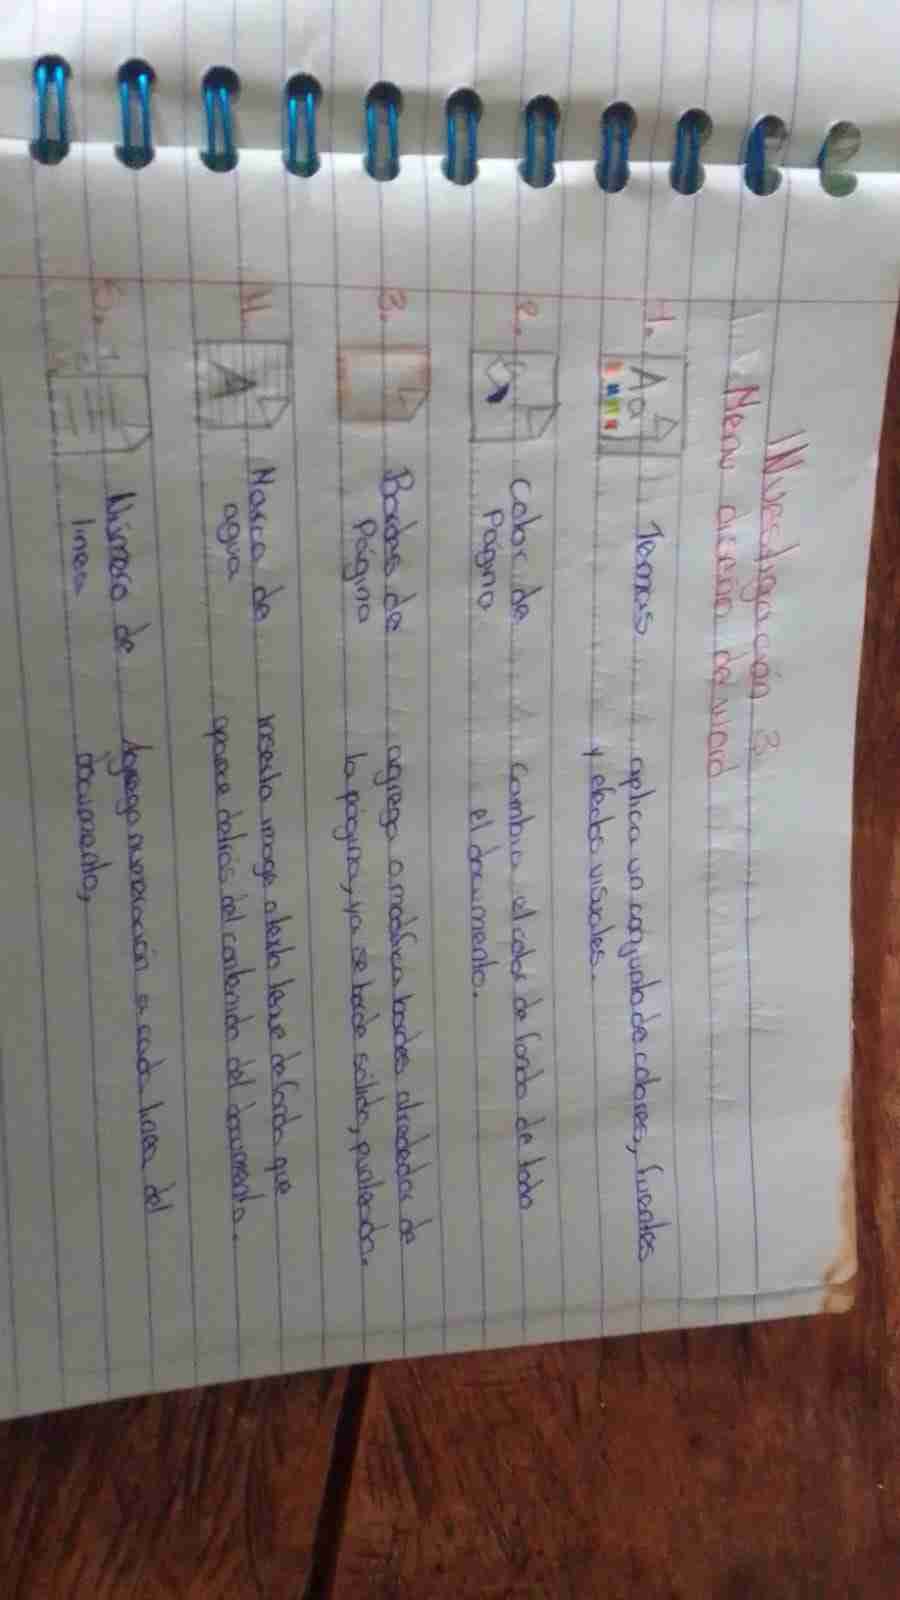 INvestigación 3
Menu diseño de word
1. Aa Temas aplica un conjunto de colores, fuentes
y efectos visuales.
2. Color de cambia el color de fondo de todo
Página el documento.
3. Bordes de agrega o modifica bordes alrededor de
Página la página, ya se borde sólido, punteado.
4. A Marca de inserta image o texto tenue de fondo que
agua aparece detrás del contenido del documento.
5. Número de Agrega numeración a cada linea del
linea documento,